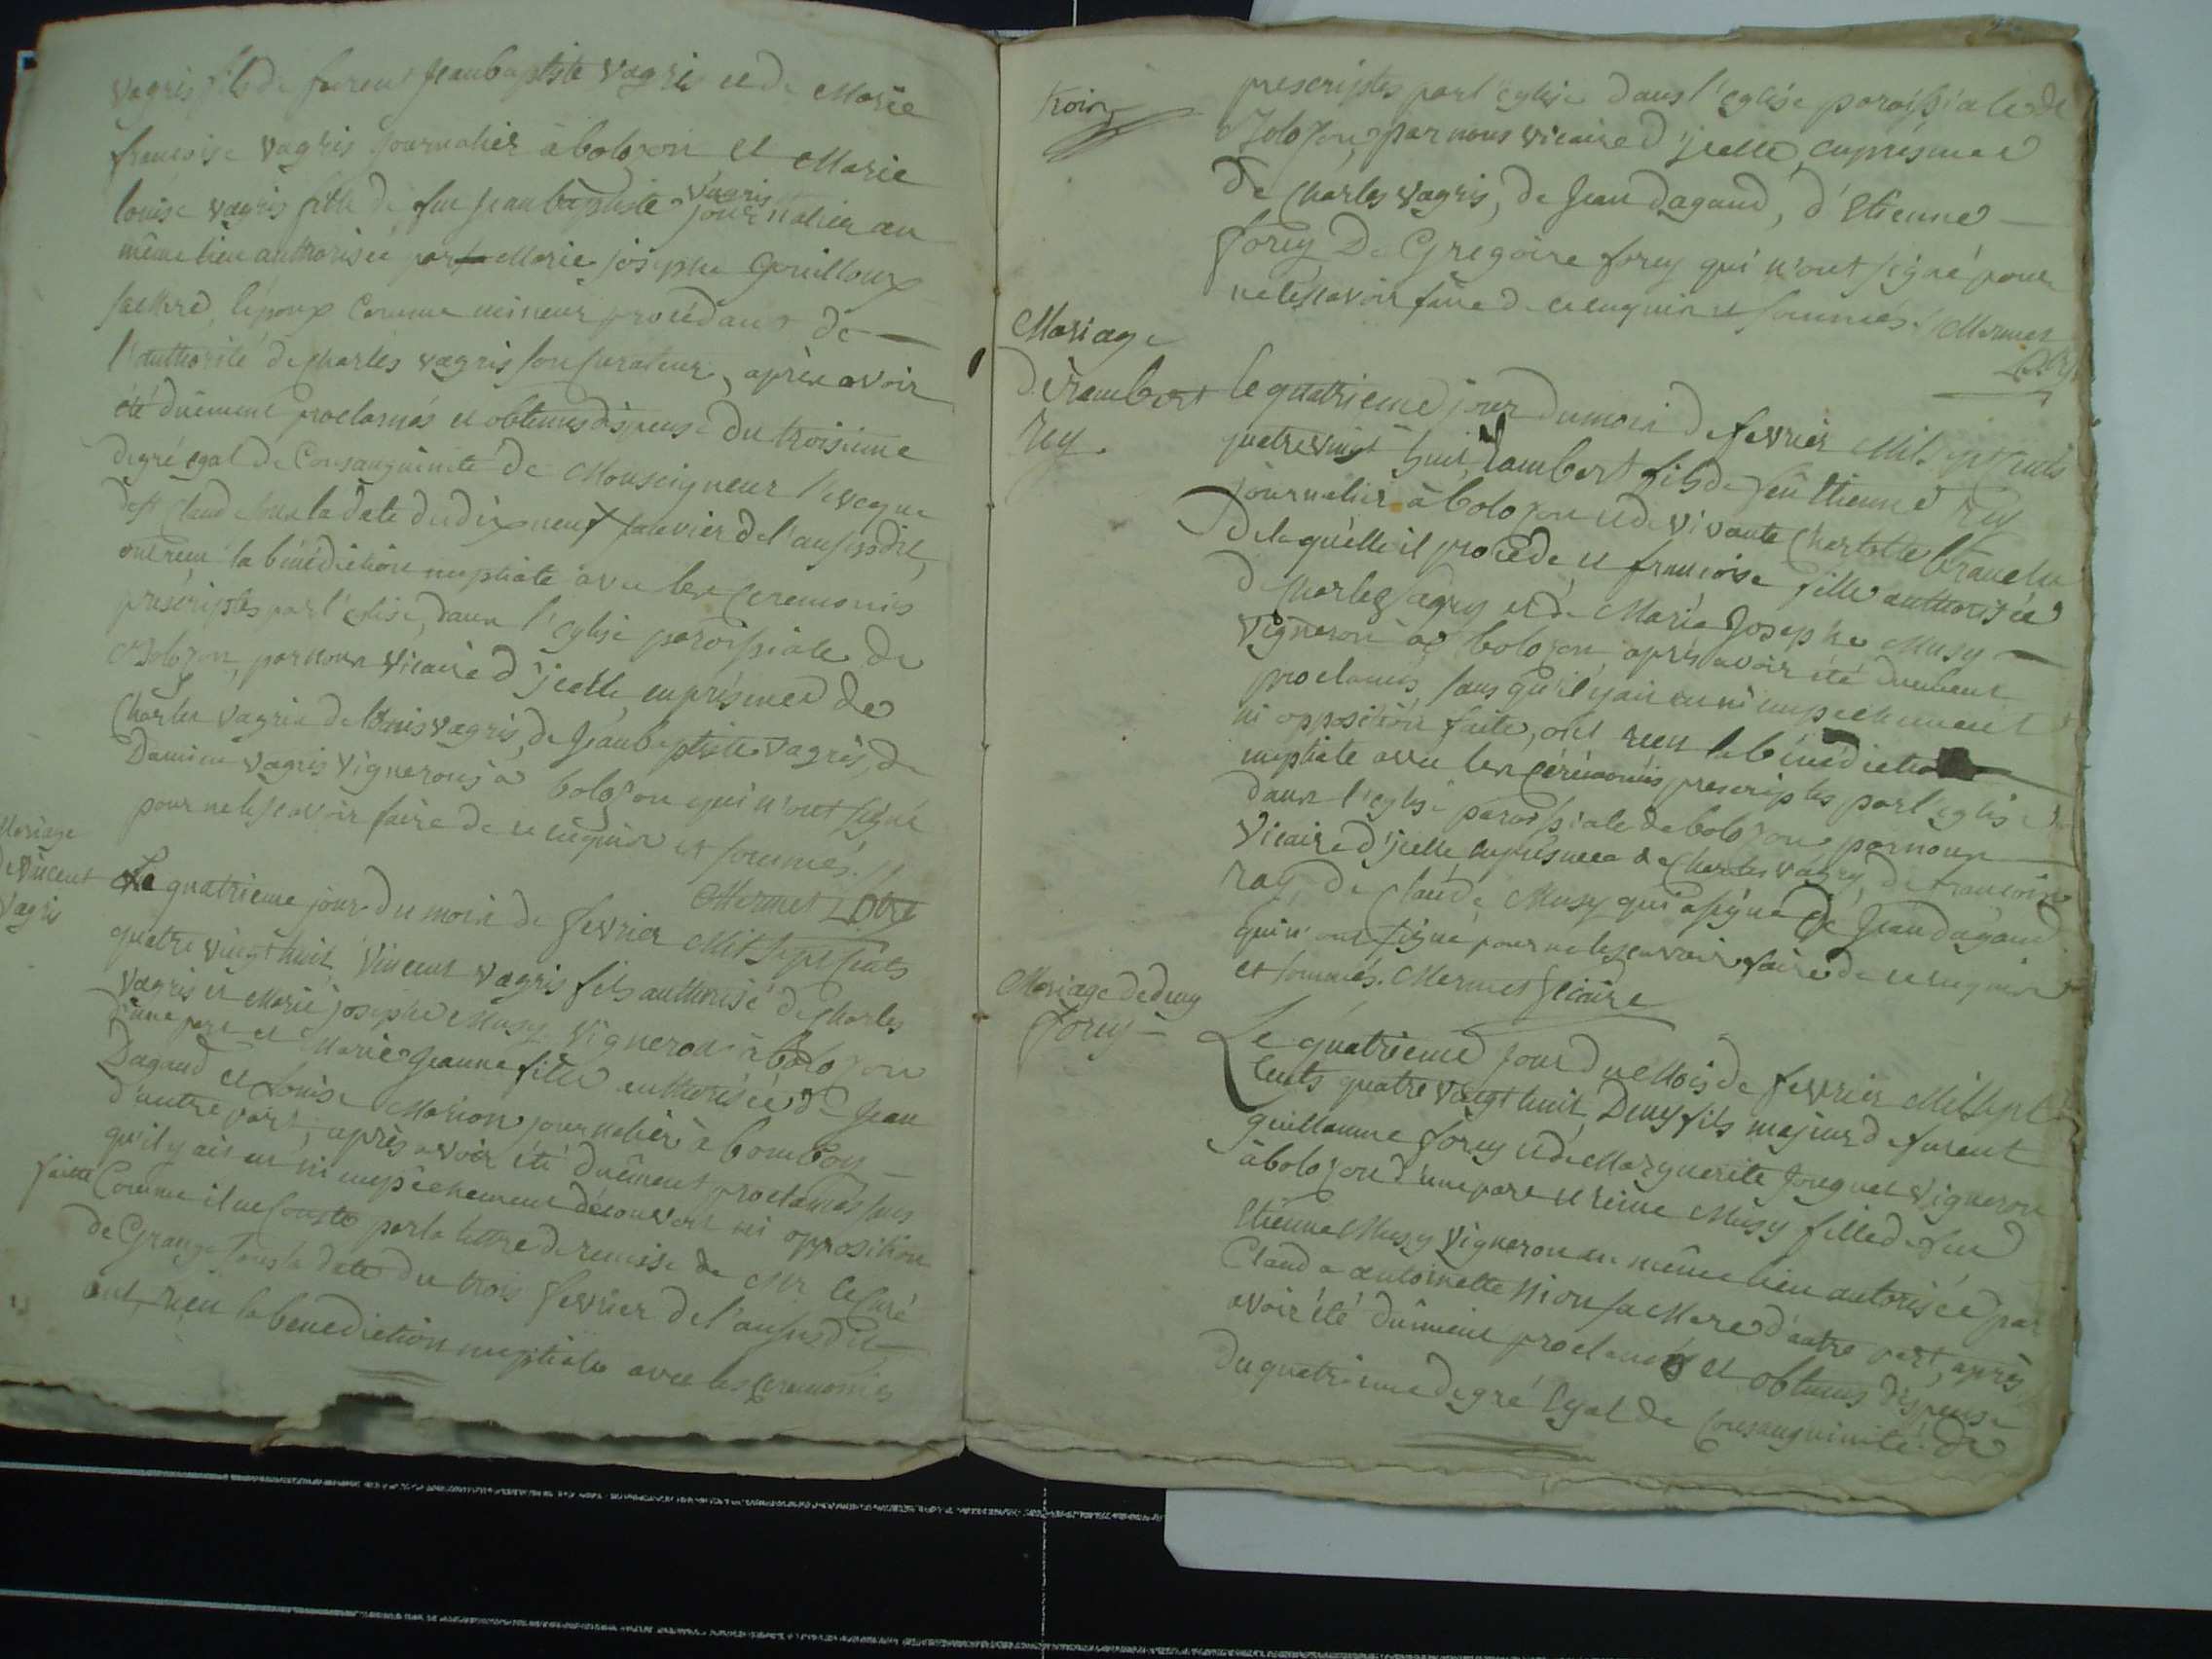 vagris fils de furent Jean baptiste vagris et de Marie
francoise vagris journalier à bolozon et Marie
louise vagris fille de feu Jean baptiste vagris journalier au
même lieu authorisée par sa Marie josephe Gouilloux
sa Mere, l'époux Comme mineur procédant de
l'authorité de charles vagris son Curateur, après avoir
été dûement proclamés et obtenus dispense du troisieme
degré egal de Consanguinité de Monseigneur l'eveque
de st Claude sous la date du dix neuf janvier de l'an susdit,
ont reçu la bénédiction nuptiale avec les ceremonies
prescriptes par l'eglise, dans l'eglise paroissiale de
Bolozon, par nous vicaire d'jcelle, en présence de
Charles vagris de louis vagris, de Jean baptiste vagris, de
Damien vagris vignerons à bolozon qui n'ont signé
pour ne le scavoir faire de ce enquis et sommés.
Mermet ptre
Mariage
de vincent
vagris
Le quatrieme jour du mois de fevrier Mil Sept Cents
quatre vingt huit, vincent vagris fils authorisé de Charles
vagris et Marie josephe Musy vigneron à bolozon
d'une part et Marie Jeanne fille authorisée de Jean
Dagaud et Louise Marion journalier à bombois
d'autre part, après avoir été dûment proclamés sans
qu'il y ait eu ni empêchement découvert ni opposition
faitte Comme il me Conste par la lettre de remise de Mr le Curé
de Grange sous la date du trois fevrier de l'an susdit
ont reçu la benediction nuptiale avec les ceremonies
Troin
prescriptes par l'église dans l'eglise paroissiale de
Bolozon, par nous vicaire d'jcelle, en présence
de Charles vagris, de Jean Dagaud, d'Etienne
forey De Gregoire forey qui n'ont signé pour
ne le scavoir faire de ce enquis et sommés. Mermet
ptre
Mariage
de rambert
Rey.
le quatrieme jour du mois de fevrier Mil Sept Cents
quatre vingt huit, Lambert fils de feu Etienne Rey
journalier à bolozon et de vivante Charlotte
de laquelle il procede, et francoise fille authorisée
de Charles vagris et de Marie Josephe Musy
vigneron à bolozon, après avoir été duement
proclamés, sans qu'il y ait eu ni empechement
ni opposition faite, ont reçu la bénédiction
nuptiale avec les cérémonies prescriptes par l'eglise
dans l'eglise paroissiale de bolozon par nous
vicaire d'jcelle, en présence de Charles vagry, de francois
ray, de Claude Musy qui a signé de Jean dagaud
qui n'ont signé pour ne le scavoir faire de ce enquis
et sommés. Mermet vicaire
Mariage de deny
Forey
Le quatrieme Jour du Mois de fevrier Mil Sept
Cents quatre vingt huit, Deny fils majeur de furent
guillaume forey et de Marguerite Jouguet vigneron
à bolozon d'une part et reine Musy fille de feu
Etienne Musy vigneron au même lieu autorisée par
Claud a antoinette Nion sa Mere d'autre part, après
avoir été dûment proclamés et obtenus dispense
du quatrieme degré Egal de Consanguinité de